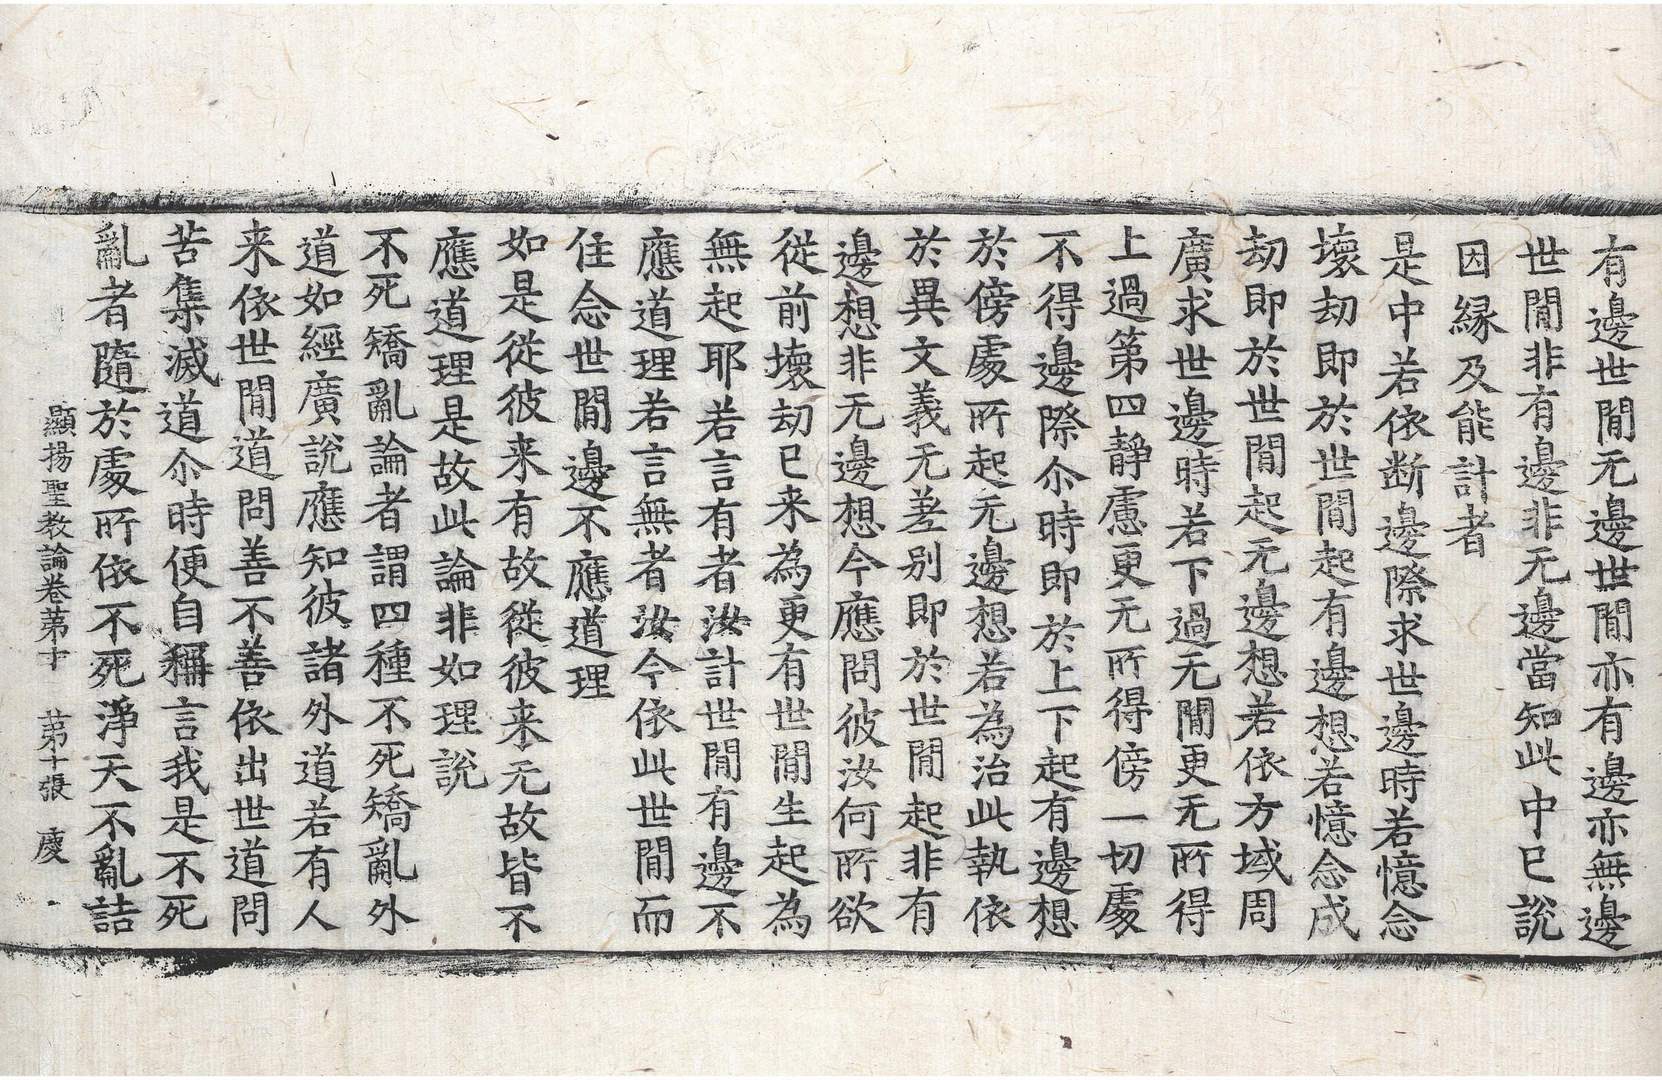 有邊世閒无邊世閒亦有邊亦無邊
世閒非有邊非无邊當知此中已說
因縁及能計者
是中若依断邊際求世邊時若憶念
壞劫即於世閒起有邊想若憶念成
劫即於世閒起无邊想若依方域周
廣求世邊時若下過无閒更无所得
上過第四靜慮更无所得傍一切處
不得邊際尒時即於上下起有邊想
於傍處所起无邊想若為治此執依
於異文義无差別即於世閒起非有
邊想非无邊想今應問彼汝何所欲
從前壞劫已来為更有世閒生起為
無起耶若言有者汝計世閒有邊不
應道理若言無者汝今依此世閒而
住念世閒邊不應道理
如是從彼来有故從彼来无故皆不
應道理是故此論非如理說
不死矯亂論者謂四種不死矯亂外
道如經廣說應知彼諸外道若有人
来依世閒道問善不善依出世道問
苦集滅道尒時便自稱言我是不死
亂者隨於處所依不死淨天不亂詰
顯揚聖教論卷苐十　苐十張　慶